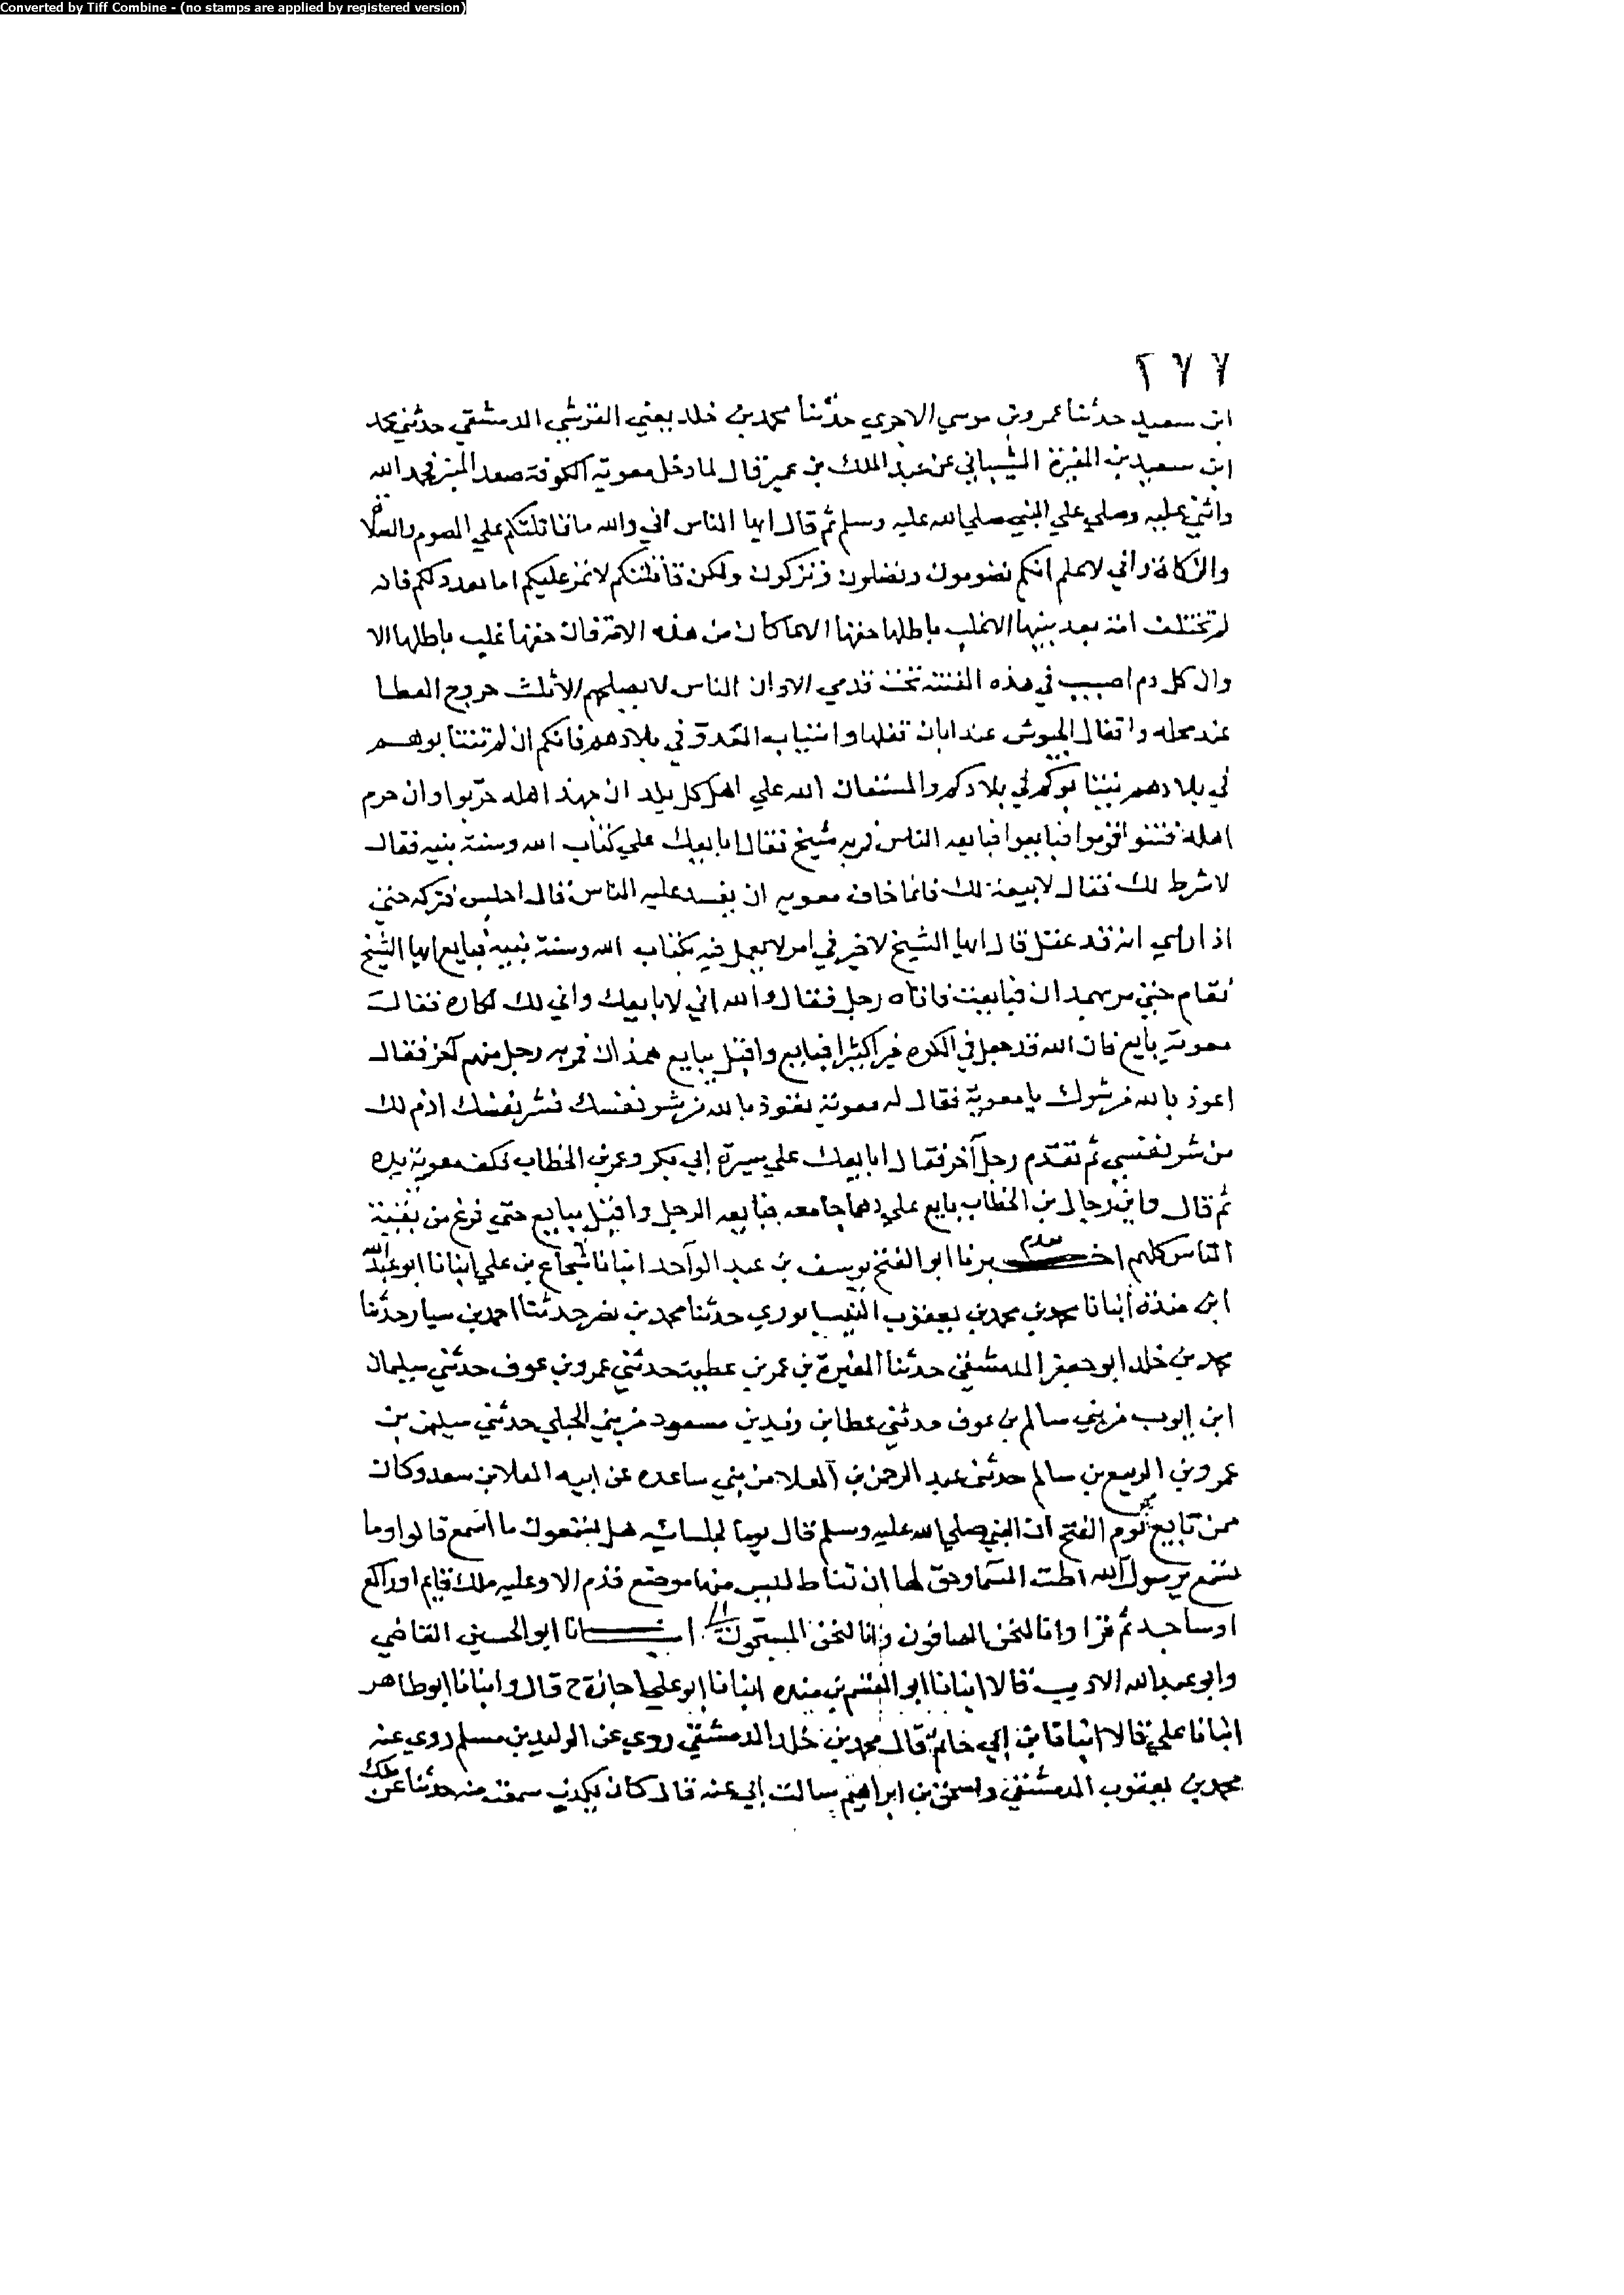 Converted by Tiff Combine - (no stamps are applied by registered version)
٢٧٧
ابن سعيد حدثنا عمرو بن موسي الاجري حدثنا محمد بن خلد يعني القرشي الدمشقي حدثني محمد
ابن سعيد بن المغيرة الشيباني عن عبد الملك بن عمير قال لما دخل معوية الكوفة صعد المنبر فحمد الله
واثني عليه وصلي علي النبي صلي الله عليه وسلم ثم قال ايها الناس اني والله ما قاتلتكم علي الصوم والصلاة
والزكاة واني لاعلم انكم تصومون وتصلون وتزكون ولكن قاتلتكم لاتمر عليكم اما بعد ذلكم فانه
لم تختلف امة بعد نبيها الا غلب باطلها حقها الا ما كان من هذه الامة فان حقها غلب باطلها الا
وان كل دم اصيب في هذه الفتنة تحت قدمي الا وان الناس لا يصلحهم الا ثلث خروج العطا
عند محله واقفال الجيوش عند ابان قفلها وانتياب العدو في بلادهم فانكم ان لم تنتابوهم
في بلادهم ينتابوكم في بلادكم والمستعان الله علي اهل كل بلد ان جهد اهله خربوا وان حرم
اهله فتنوا قوموا فبايعوا فبايعه الناس فمر به شيخ فقال ابايعك علي كتاب الله وسنة نبيه فقال
لا شرط لك فقال لا بيعة لك فانما خاف معوية ان يفسد عليه الناس فقال اجلس فتركه حتي
اذا راي انه قد عقل قال ايها الشيخ لا خير في امر لا يعمل فيه بكتاب الله وسنة نبيه فبايع ايها الشيخ
فقام حتي مر بهمدان فبايعت فاتاه رجل فقال والله اني لابايعك واني لك لكاره فقال
معوية بايع فان الله قد جعل في الكره خيرا كثيرا فبايع واقبل يبايع همذان فمر به رجل منهم آخر فقال
اعوذ بالله من شرك يا معوية فقال له معوية تعوذ بالله من شر نفسك فشر نفسك اذم لك
من شر نفسي ثم تقدم رجل آخر فقال ابايعك علي سيرة ابي بكر وعمر بن الخطاب فكف معوية يده
ثم قال واين رجال بن الخطاب بايع علي جامعه فبايعه الرجل واقبل يبايع حتي فرغ من بقية
الناس كلهم اخبرنا ابو الفتح يوسف بن عبد الواحد انبانا شجاع بن علي انبانا ابو عبد الله
ابن منده انبانا محمد بن محمد بن يعقوب النيسابوري حدثنا محمد بن نصر حدثنا احمد بن سيار حدثنا
محمد بن خلد ابو جعفر الدمشقي حدثنا المغيرة بن عمر بن عطية حدثني عمرو بن عوف حدثني سليمان
ابن ايوب من بني سالم بن عوف حدثني عطا بن زيد بن مسعود من بني الحبلي حدثني سليمن بن
عمرو بن الربيع بن سالم حدثني عبد الرحمن بن العلا من بني ساعده عن ابيه العلا بن سعد وكان
ممن بايع يوم الفتح ان النبي صلي الله عليه وسلم قال يوما لجلسائه هل تسمعون ما اسمع قالوا وما
تسمع يرسول الله اطت السما وحق لها ان تئط ليس منها موضع قدم الا وعليه ملك قايم او راكع
او ساجد ثم قرا وانا لنحن الصافون وانا لنحن المسبحون انبانا ابو الحسين القاضي
وابو عبد الله الاديب قالا انبانا ابو القسم بن منده انبانا ابو علي اجازة ح قال وانبانا ابو طاهر
انبانا علي قالا انبانا بن ابي حاتم قال محمد بن خلد الدمشقي روي عن الوليد بن مسلم روي عنه
محمد بن يعقوب الدمشقي واسحق بن ابراهيم سالت ابي عنه قال كان يكذب سمعت منه حدثنا عن